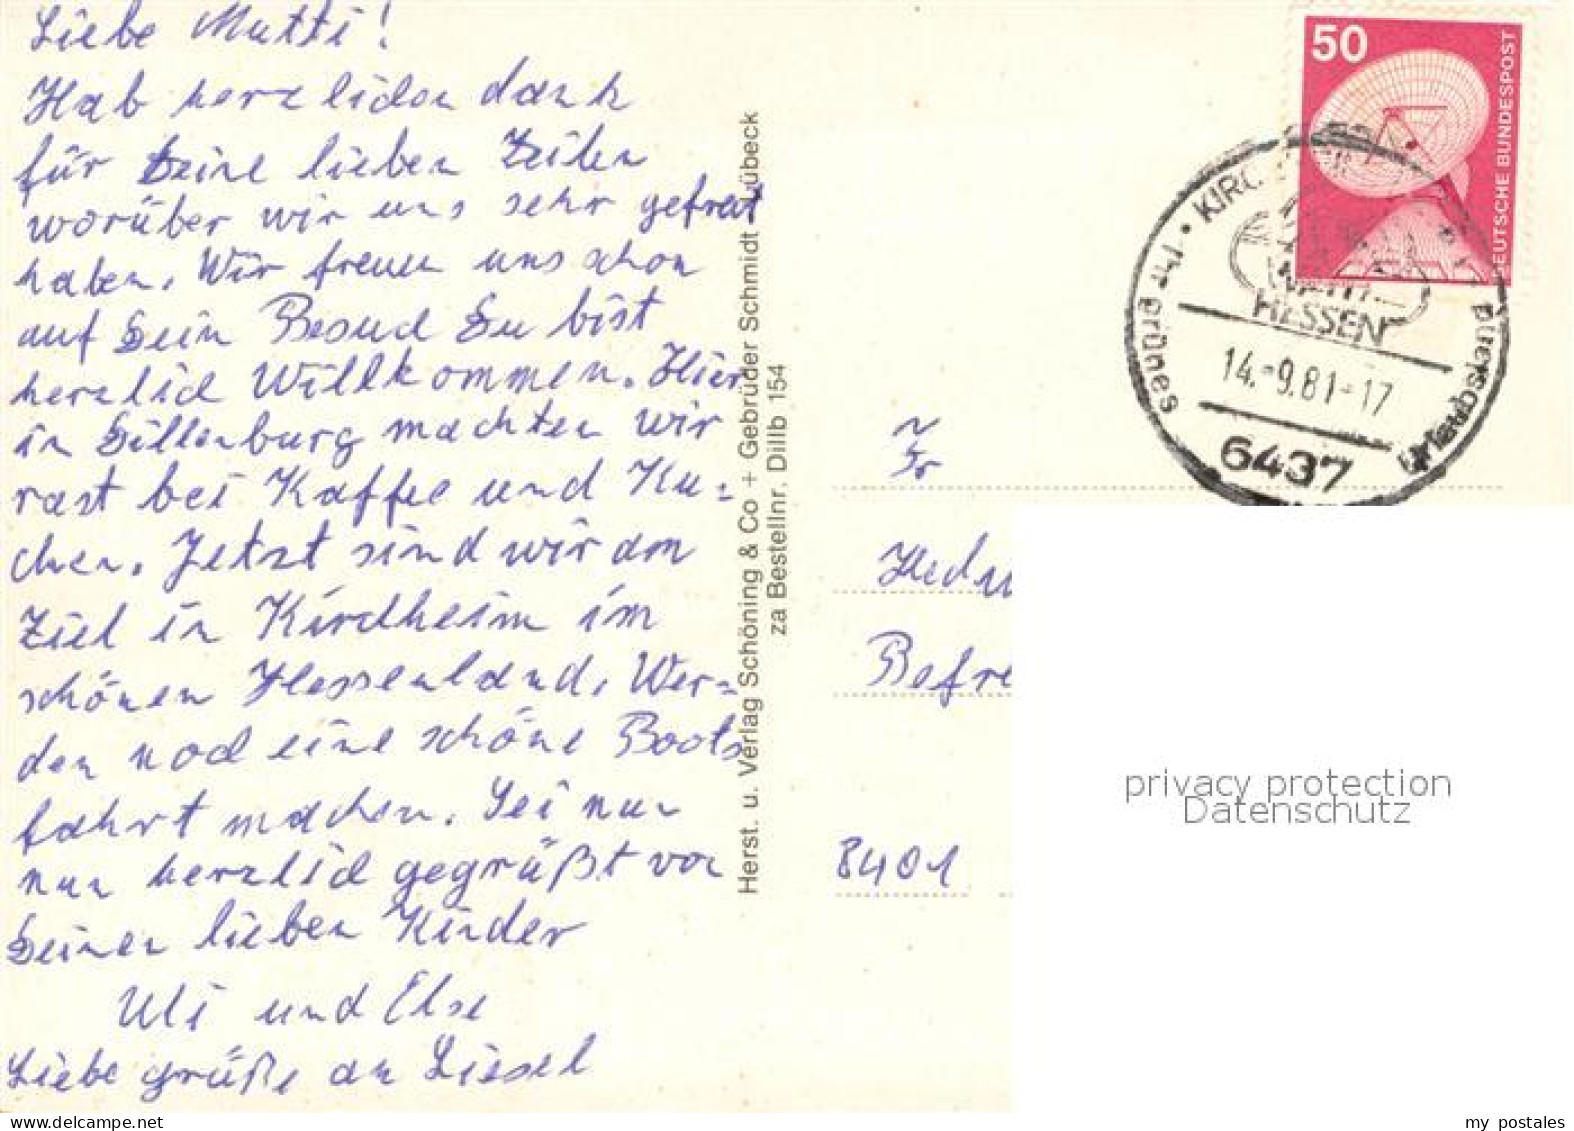 Liebe Mutti!
Hab herzlichen dank
für Deine lieben Zeilen
worüber wir uns sehr gefreut
haben. Wir freuen uns schon
auf Dein Besuch Du bist
herzlich Willkommen. Hier
in Dillenburg machten wir
rast bei Kaffee und Ku=
chen. Jetzt sind wir am
Ziel in Kirchheim im
schönen Hessenland. Wer=
den noch eine schöne Boots
fahrt machen. Sei nun
nun herzlich gegrüßt von
Deinen lieben Kinder
Uli und Else
Liebe grüße an Liesel
Herst. u. Verlag Schöning & Co + Gebrüder Schmidt Lübeck
za Bestellnr. Dillb 154
50
DEUTSCHE BUNDESPOST
Ihr grünes Urlaubsland
HESSEN
14.-9.81-17
6437
Fr
8401
privacy protection
Datenschutz
my postales